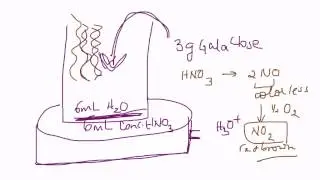 3g Galactose
HNO3 → 2NO
colorless
↓ O2
H3O+
NO2
redbrown
6mL H2O
6mL Conc. HNO3